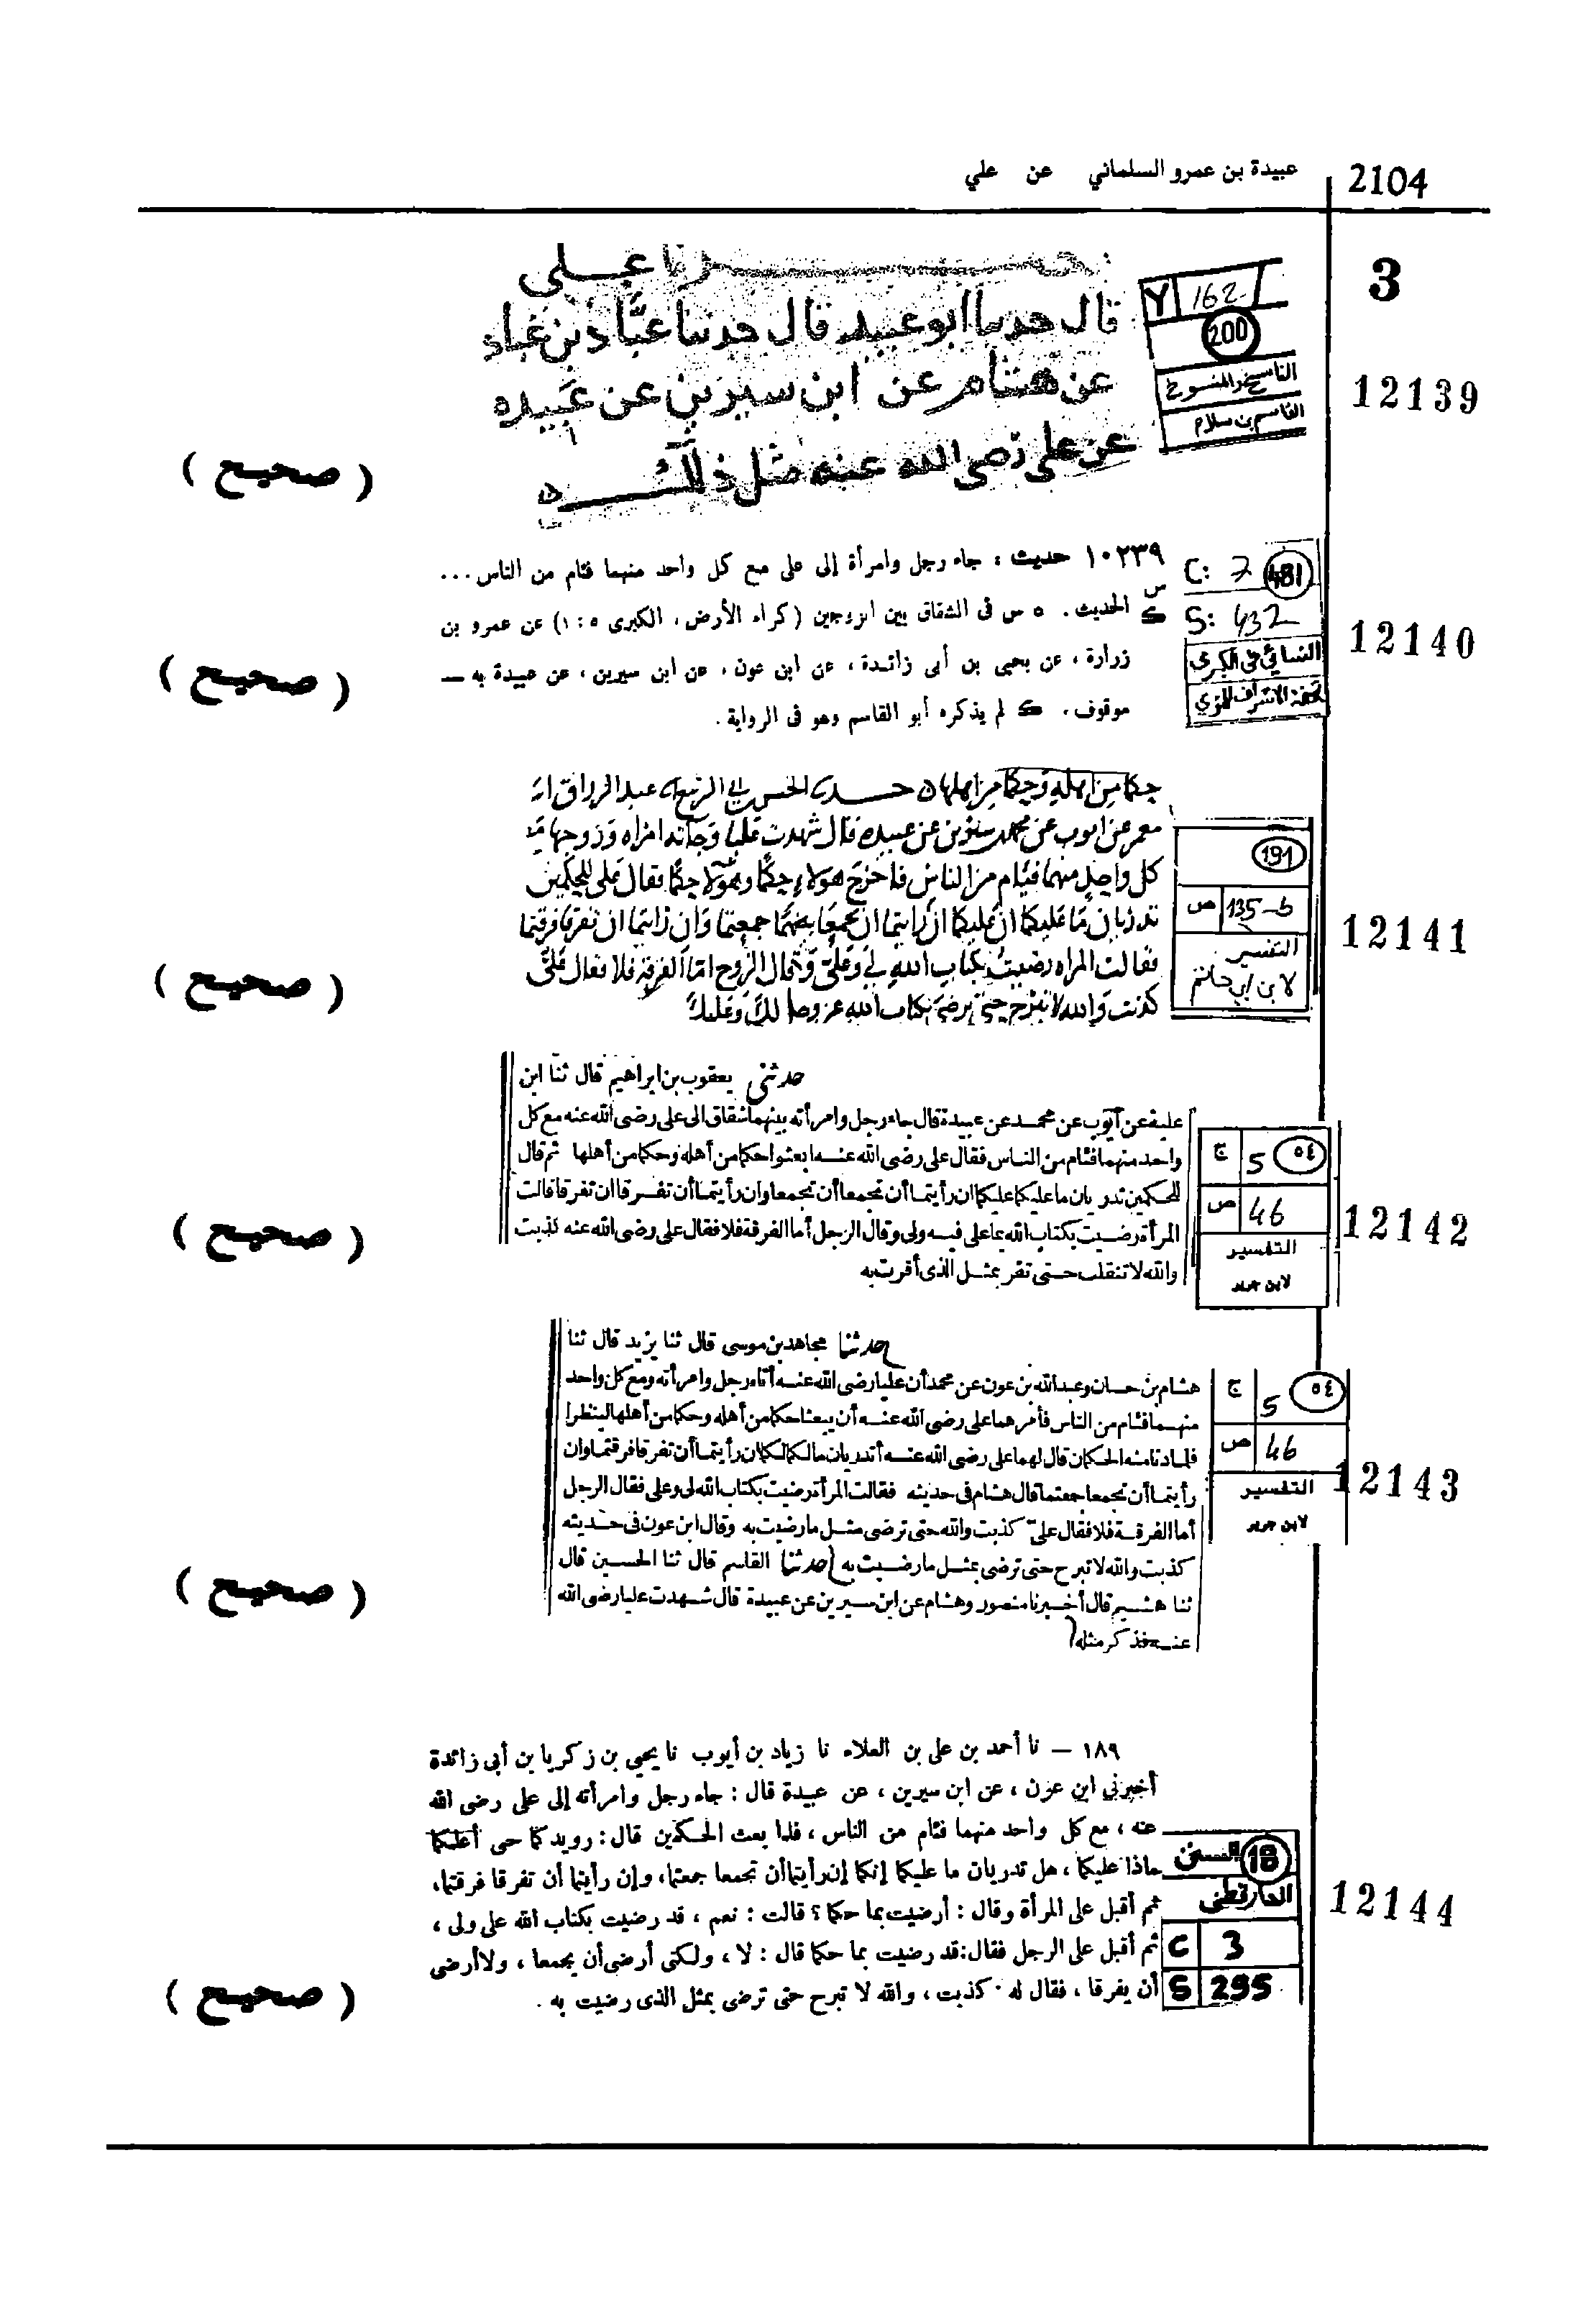 2104
عبيدة بن عمرو السلماني عن علي
3
علي
قال حدثنا أبو عبيد قال حدثنا عبّاد بن عباد
عن هشام عن ابن سيرين عن عبيده
عن علي رضى الله عنه مثل ذلك
162
200
الناسخ والمنسوخ
القاسم بن سلام
12139
( صحيح )
١٠٢٣٩ حديث : جاء رجل وامرأة إلى على مع كل واحد منهما فئام من الناس ...
س
ك الحديث . ٥ س فى الشقاق بين الزوجين ( كراء الأرض ، الكبرى ٥ : ١ ) عن عمرو بن
زرارة ، عن يحيى بن أبى زائدة ، عن ابن عون ، عن ابن سيرين ، عن عبيدة به —
موقوف . ك لم يذكره أبو القاسم وهو فى الرواية .
C: 7 481
S: 432
النسائي في الكبرى
تحفة الاشراف للمزي
12140
( صحيح )
حكما من اهله وحكما من اهلها حدثنا الحسن بن ابي الربيع عبد الرزاق انا
معمر عن ايوب عن محمد بن سيرين عن عبيده قال شهدت عليا وجاته امراه وزوجها مع
كل واحد منهما فئام من الناس فاخرج هولاء حكما وهولا حكما فقال علي للحكمين
تدريان ما عليكما ان عليكما ان رايتما ان تجمعا بينهما جمعتما وان رايتما ان تفرقا فرقتما
فقالت المراه رضيت بكتاب الله لي وعليّ وقال الزوج امّا الفرقه فلا فقال عليّ
كذبت والله لا تبرح حتى ترضى بكتاب الله عز وجل لك وعليك
191
ص 135-b
التفسير
لابن ابي حاتم
12141
( صحيح )
حدثني يعقوب بن ابراهيم قال ثنا ابن
علية عن أيوب عن محمد عن عبيدة قال جاء رجل وامرأته بينهما شقاق الى على رضى الله عنه مع كل
واحد منهما فئام من الناس فقال على رضى الله عنه ابعثوا حكما من أهله وحكما من أهلها ثم قال
للحكمين تدريان ما عليكما عليكما ان رأيتما أن تجمعا أن تجمعا وان رأيتما أن تفرقا ان تفرقا قالت
المرأة رضيت بكتاب الله بما على فيه ولى وقال الرجل أما الفرقة فلا فقال على رضى الله عنه كذبت
والله لا تنقلب حتى تقر بمثل الذى أقرت به
٥٤ 5 ج
46 ص
التفسير
لابن جرير
12142
( صحيح )
حدثنا مجاهد بن موسى قال ثنا يزيد قال ثنا
هشام بن حسان وعبد الله بن عون عن محمد أن عليا رضى الله عنه أتاه رجل وامرأته ومع كل واحد
منهما فئام من الناس فأمرهما على رضى الله عنه أن يبعثا حكما من أهله وحكما من أهلها لينظرا
فلما دنا منه الحكمان قال لهما على رضى الله عنه أتدريان مالكما لكما ان رأيتما أن تفرقا فرقتما وان
رأيتما أن تجمعا جمعتما قال هشام فى حديثه فقالت المرأة رضيت بكتاب الله لى وعلى فقال الرجل
أما الفرقة فلا فقال علىّ كذبت والله حتى ترضى مثل ما رضيت به وقال ابن عون فى حديثه
كذبت والله لا تبرح حتى ترضى بمثل ما رضيت به حدثنا القاسم قال ثنا الحسين قال
ثنا هشيم قال أخبرنا منصور وهشام عن ابن سيرين عن عبيدة قال شهدت عليا رضى الله
عنه فذكر مثله
٥٤ 5 ج
46 ص
التفسير
لابن جرير
12143
( صحيح )
١٨٩ — نا أحمد بن على بن العلاء نا زياد بن أيوب نا يحيى بن زكريا بن أبى زائدة
أخبرنى ابن عون ، عن ابن سيرين ، عن عبيدة قال : جاء رجل وامرأته إلى على رضى الله
عنه ، مع كل واحد منهما فئام من الناس ، فلما بعث الحكمين قال : رويدكما حتى أعلمكما
ماذا عليكما ، هل تدريان ما عليكما إنكما إن رأيتما أن تجمعا جمعتما، وإن رأيتما أن تفرقا فرقتما،
ثم أقبل على المرأة وقال : أرضيت بما حكما ؟ قالت : نعم ، قد رضيت بكتاب الله على ولى ،
ثم أقبل على الرجل فقال : قد رضيت بما حكما قال : لا ، ولكنى أرضى أن يجمعا ، ولا أرضى
أن يفرقا ، فقال له . كذبت ، والله لا تبرح حتى ترضى بمثل الذى رضيت به .
18 السنن
الدارقطني
C 3
S 295
12144
( صحيح )